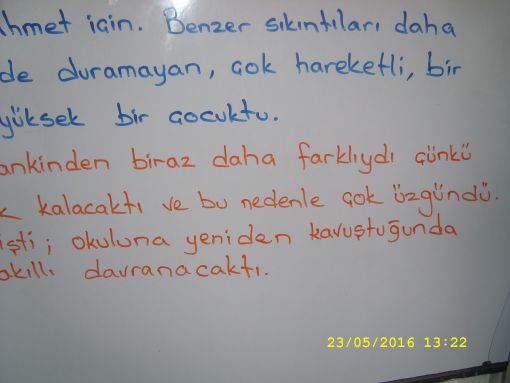 Ahmet için. Benzer sıkıntıları daha
de duramayan, çok hareketli, bir
yüksek bir çocuktu.
ankinden biraz daha farklıydı çünkü
k kalacaktı ve bu nedenle çok üzgündü.
işti; okuluna yeniden kavuştuğunda
akıllı davranacaktı.
23/05/2016 13:22